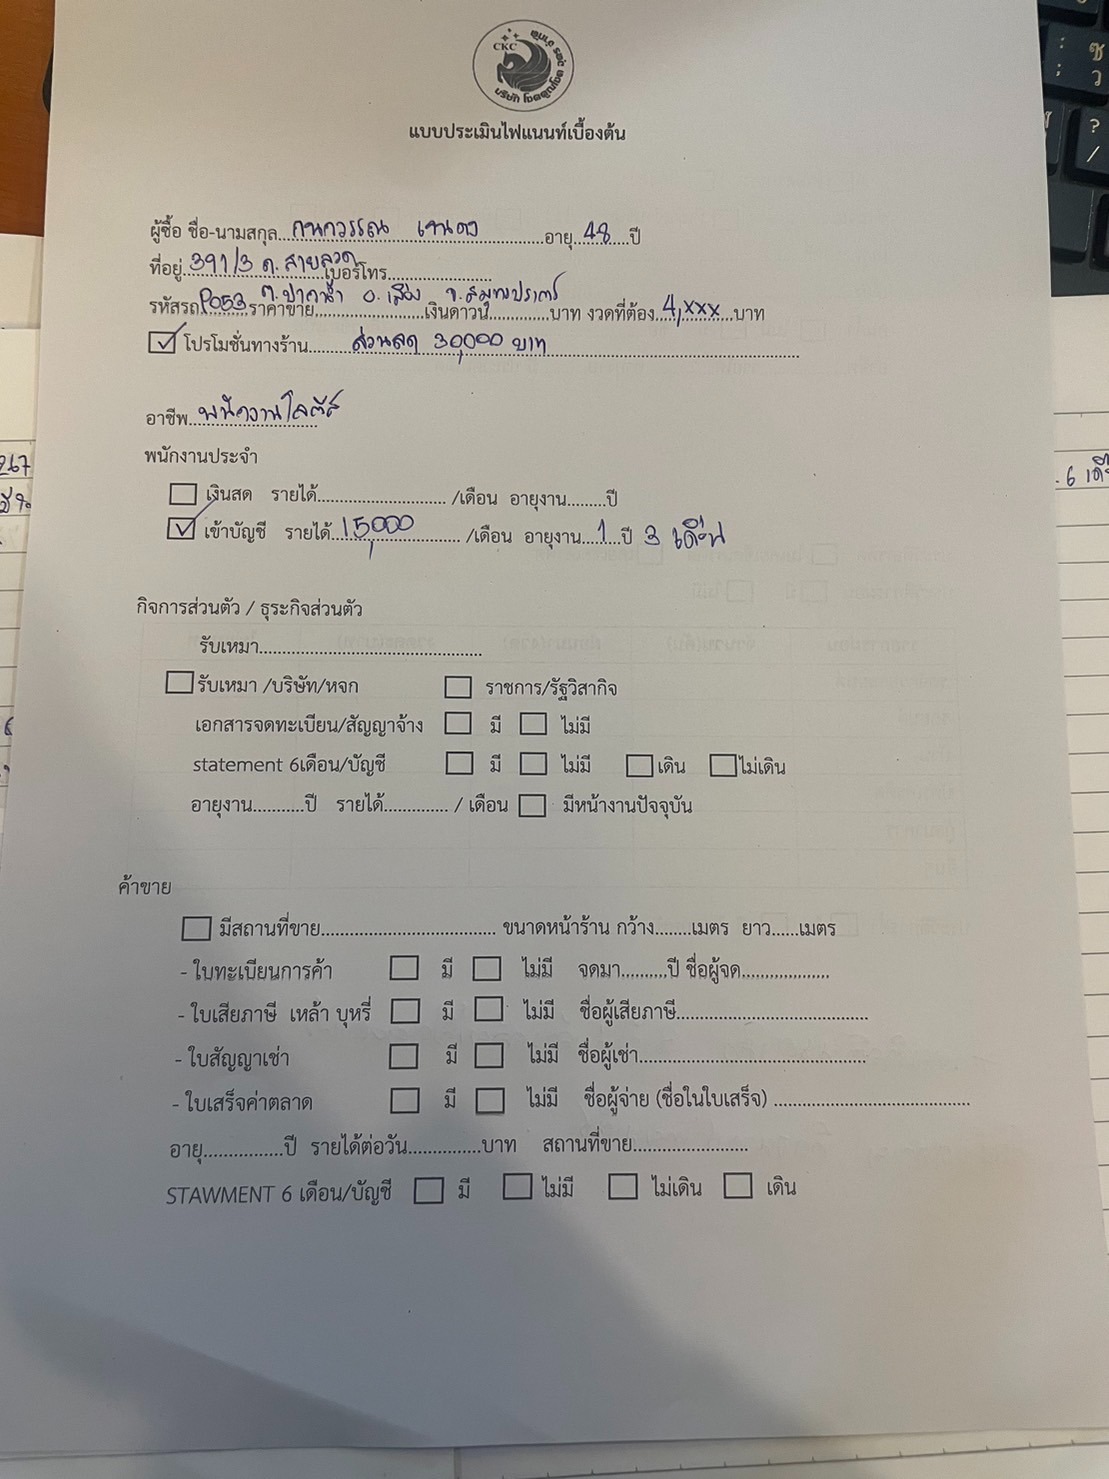 CKC
แบบประเมินไฟแนนท์เบื้องต้น
ผู้ซื้อ ชื่อ-นามสกุล....กนกวรรณ ....อายุ..48..ปี
ที่อยู่..391/3 ถ.สายลวด..เบอร์โทร..........
ต.ปากน้ำ อ.เมือง จ.สมุทรปราการ
รหัสรถ.P053.ราคาขาย..........เงินดาวน์..........บาท งวดที่ต้อง.4,xxx..บาท
☑ โปรโมชั่นทางร้าน....ส่วนลด 30,000 บาท
อาชีพ..พนักงาน
พนักงานประจำ
☐ เงินสด รายได้............/เดือน อายุงาน.........ปี
☑ เข้าบัญชี รายได้..15,000....../เดือน อายุงาน...1...ปี 3 เดือน
กิจการส่วนตัว / ธุระกิจส่วนตัว
รับเหมา..........
☐ รับเหมา /บริษัท/หจก ☐ ราชการ/รัฐวิสากิจ
เอกสารจดทะเบียน/สัญญาจ้าง ☐ มี ☐ ไม่มี
statement 6เดือน/บัญชี ☐ มี ☐ ไม่มี ☐ เดิน ☐ ไม่เดิน
อายุงาน..........ปี รายได้............. / เดือน ☐ มีหน้างานปัจจุบัน
ค้าขาย
☐ มีสถานที่ขาย.......... ขนาดหน้าร้าน กว้าง........เมตร ยาว......เมตร
- ใบทะเบียนการค้า ☐ มี ☐ ไม่มี จดมา..........ปี ชื่อผู้จด..........
- ใบเสียภาษี เหล้า บุหรี่ ☐ มี ☐ ไม่มี ชื่อผู้เสียภาษี..........
- ใบสัญญาเช่า ☐ มี ☐ ไม่มี ชื่อผู้เช่า..........
- ใบเสร็จค่าตลาด ☐ มี ☐ ไม่มี ชื่อผู้จ่าย (ชื่อในใบเสร็จ) ..........
อายุ..........ปี รายได้ต่อวัน..........บาท สถานที่ขาย..........
STAWMENT 6 เดือน/บัญชี ☐ มี ☐ ไม่มี ☐ ไม่เดิน ☐ เดิน